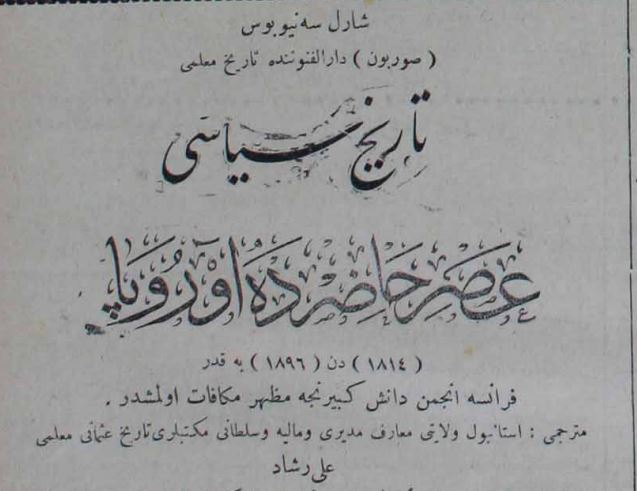 شارل سه نیوبوس
( صوربون ) دارالفنوننده تاریخ معلمی
تاریخ سیاسی
عصر حاضرده اوروپا
( ١٨١٤ ) دن ( ١٨٩٦ ) یه قدر
فرانسه انجمن دانش کبیرنجه مظهر مکافات اولمشدر .
مترجمی : استانبول ولایتی معارف مدیری ومالیه وسلطانی مکتبلری تاریخ عثمانی معلمی
علی رشاد